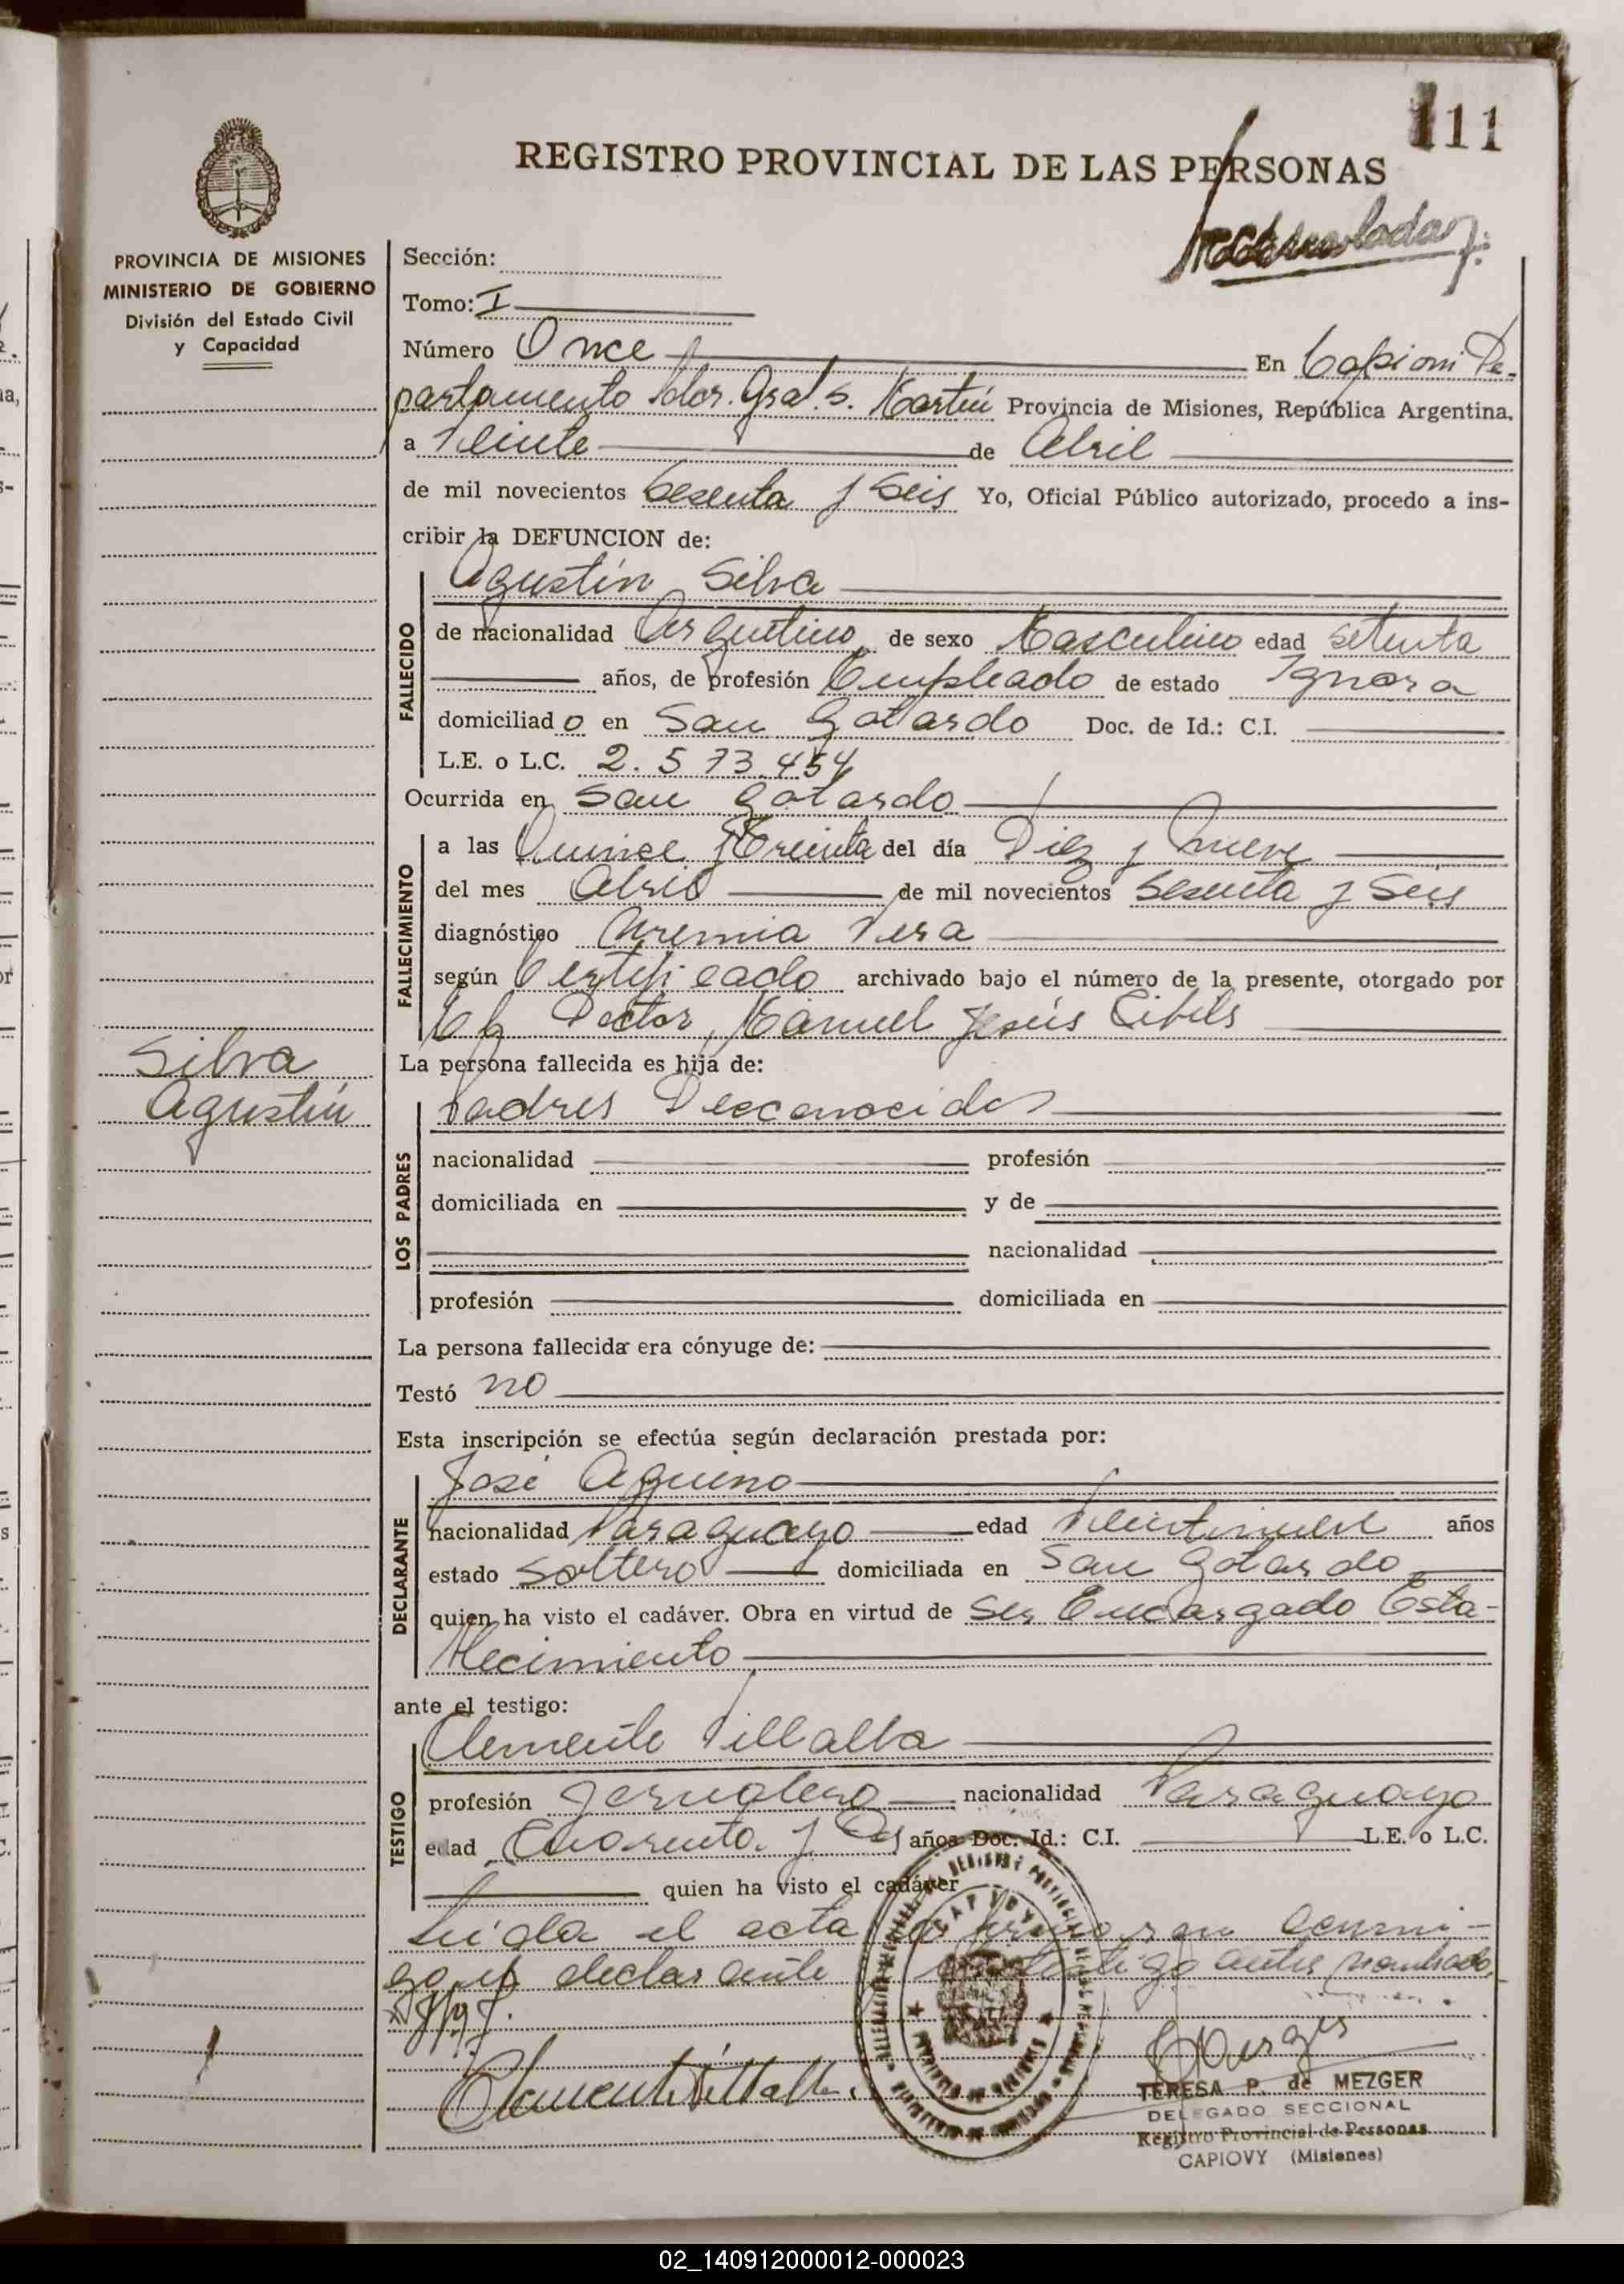 111
REGISTRO PROVINCIAL DE LAS PERSONAS
PROVINCIA DE MISIONES
MINISTERIO DE GOBIERNO
División del Estado Civil
y Capacidad
Sección:
Tomo: I
Número Once En Capioni De-
partamento Ldor. Gral. S. Martín Provincia de Misiones, República Argentina.
a Veinte de Abril
de mil novecientos Sesenta y Seis Yo, Oficial Público autorizado, procedo a ins-
cribir la DEFUNCION de:
FALLECIDO
Agustín Silva
de nacionalidad Argentino de sexo Masculino edad setenta
años, de profesión Empleado de estado Ignora
domiciliado en San Gotardo Doc. de Id.: C.I.
L.E. o L.C. 2.573.454
Ocurrida en San Gotardo
FALLECIMIENTO
a las Quince y Treinta del día Diez y Nueve
del mes Abril de mil novecientos Sesenta y Seis
diagnóstico Uremia Vera
según Certificado archivado bajo el número de la presente, otorgado por
El Doctor, Manuel Jesús Cibils
La persona fallecida es hija de:
Silva
Agustín
LOS PADRES
Padres Desconocidos
nacionalidad profesión
domiciliada en y de
nacionalidad
profesión domiciliada en
La persona fallecida era cónyuge de:
Testó no
Esta inscripción se efectúa según declaración prestada por:
DECLARANTE
José Aquino
nacionalidad Paraguayo edad Veintinueve años
estado Soltero domiciliada en San Gotardo
quien ha visto el cadáver. Obra en virtud de Ser Encargado Esta-
blecimiento
ante el testigo:
TESTIGO
Clemente Villalba
profesión Jornalero nacionalidad Paraguayo
edad Cuarenta y años Doc. Id.: C.I. L.E. o L.C.
quien ha visto el cadáver
Leida el acta la firmaron conmi-
go el declarante y el testigo antes nombrado.
Clemente Villalba
CAPIOVY
PROVINCIA DE MISIONES
TERESA P. de MEZGER
DELEGADO SECCIONAL
Registro Provincial de Personas
CAPIOVY (Misiones)
02_140912000012-000023